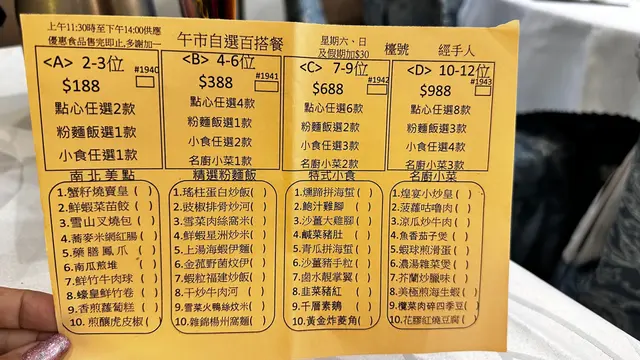 上午11:30時至下午14:00供應
優惠食品售完即止,多謝加一
午市自選百搭餐
星期六、日
及假期加$30
檯號
經手人
<A> 2-3位
$188
#1940
點心任選2款
粉麵飯選1款
小食任選1款
<B> 4-6位
$388
#1941
點心任選4款
粉麵飯選1款
小食任選2款
名廚小菜1款
<C> 7-9位
$688
#1942
點心任選6款
粉麵飯選2款
小食任選2款
名廚小菜2款
<D> 10-12位
$988
#1943
點心任選8款
粉麵飯選3款
小食任選4款
名廚小菜3款
南北美點
1.蟹籽燒賣皇( )
2.鮮蝦菜苗餃( )
3.雪山叉燒包( )
4.蕎麥米網紅腸( )
5.藥膳鳳爪( )
6.南瓜煎堆( )
7.鮮竹牛肉球( )
8.蠔皇鮮竹卷( )
9.香煎蘿蔔糕( )
10.煎釀虎皮椒( )
精選粉麵飯
1.瑤柱蛋白炒飯( )
2.豉椒排骨炒河( )
3.雪菜肉絲窩米( )
4.鮮蝦星洲炒米( )
5.上湯海蝦伊麵( )
6.金菰野菌炆伊( )
7.蝦粒福建炒飯( )
8.干炒牛肉河( )
9.雪菜火鴨絲炆米( )
10.雜錦楊州窩麵( )
特式小食
1.燻蹄拼海蜇( )
2.鮑汁雞腳( )
3.沙薑大雞腳( )
4.鹹菜豬肚( )
5.青瓜拼海蜇( )
6.沙薑豬手粒( )
7.鹵水靚掌翼( )
8.韭菜豬紅( )
9.千層素鵝( )
10.黃金炸菱角( )
名廚小菜
1.煌宴小炒皇( )
2.菠蘿咕嚕肉( )
3.涼瓜炒牛肉( )
4.魚香茄子煲( )
5.蝦球煎滑蛋( )
6.濃湯雜菜煲( )
7.芥蘭炒臘味( )
8.美極煎海生蝦( )
9.欖菜肉碎四季豆( )
10.花膠紅燒豆腐( )